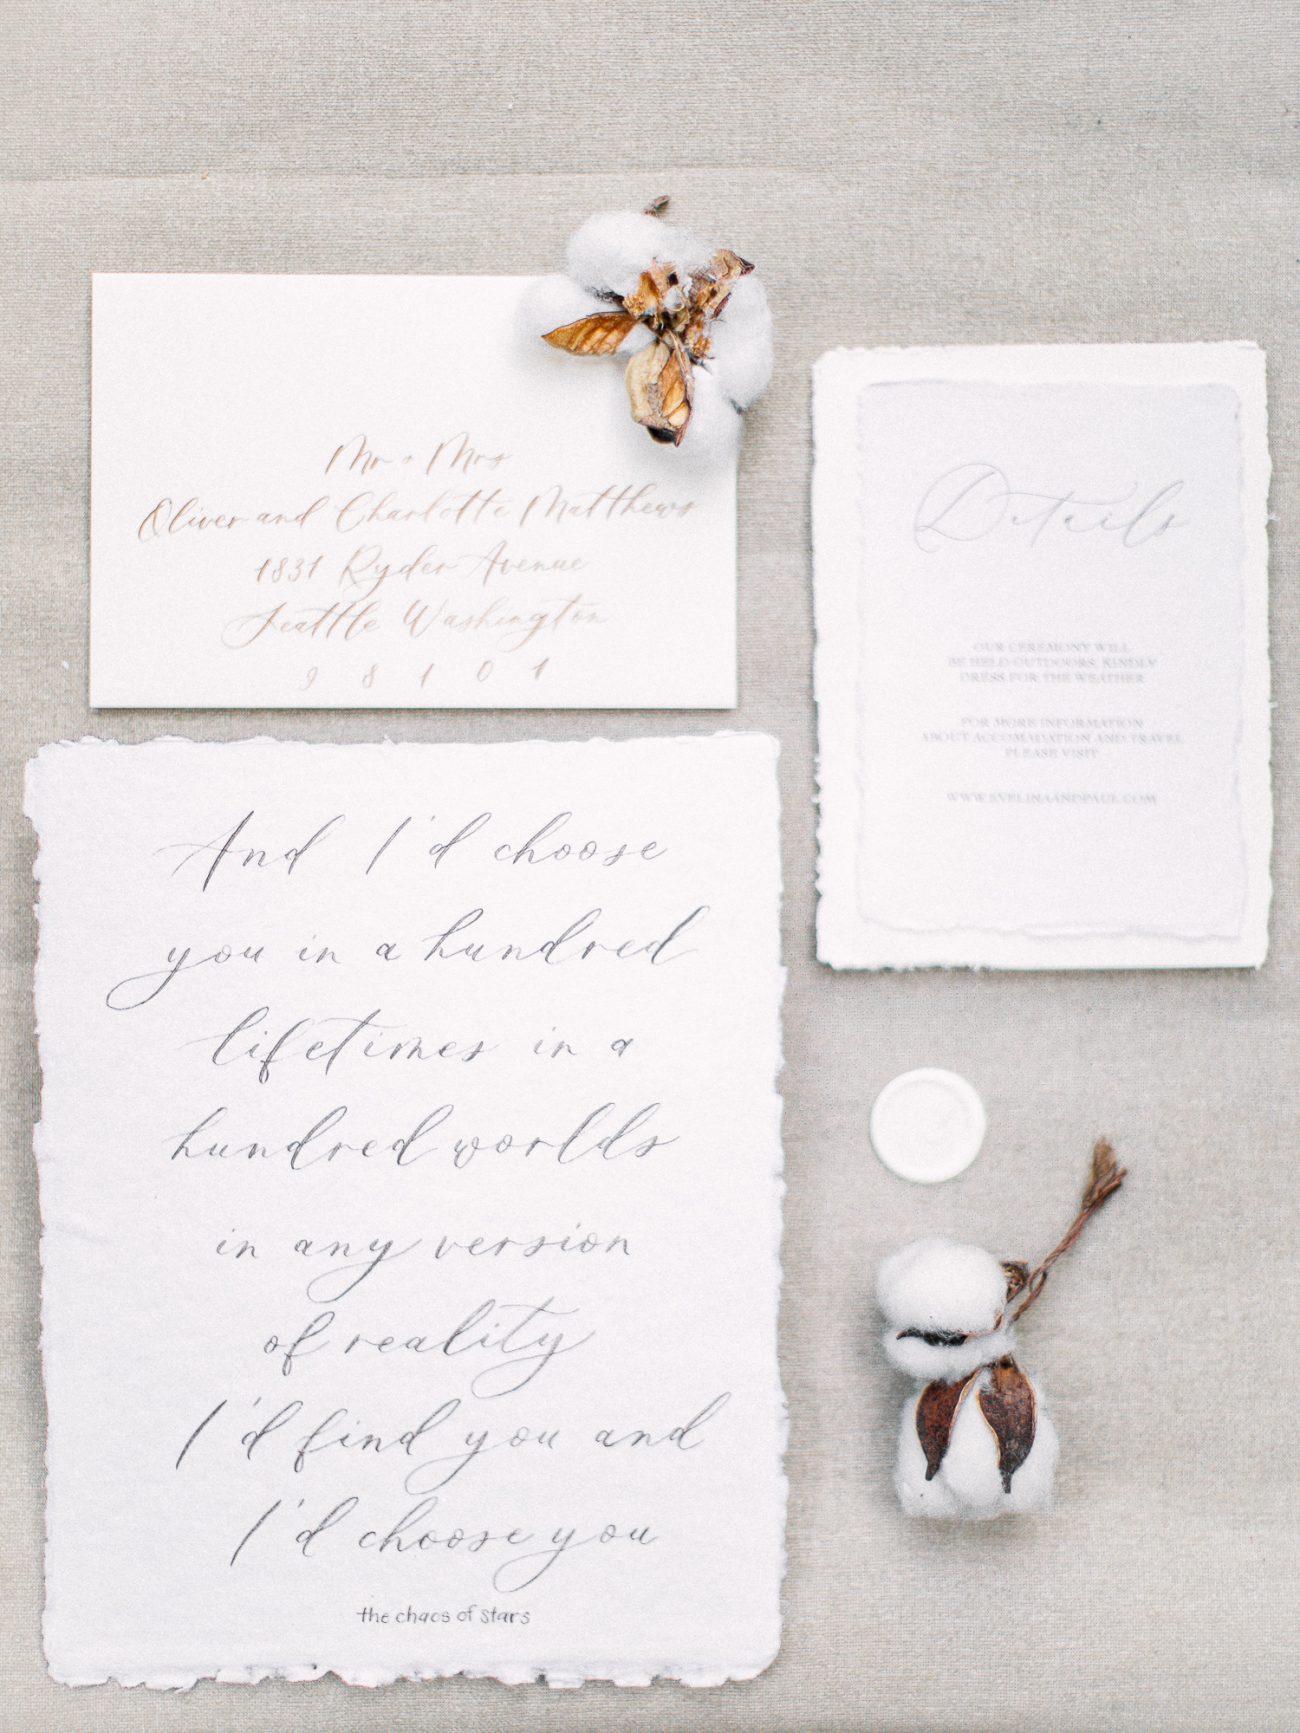 Mr + Mrs
Oliver and Charlotte Matthews
1831 Ryder Avenue
Seattle Washington
98101
Details
OUR CEREMONY WILL
BE HELD OUTDOORS, KINDLY
DRESS FOR THE WEATHER
FOR MORE INFORMATION
ABOUT ACCOMADATION AND TRAVEL
PLEASE VISIT
WWW.EVELINAANDPAUL.COM
And I'd choose
you in a hundred
lifetimes in a
hundred worlds
in any version
of reality
I'd find you and
I'd choose you
the chaos of stars